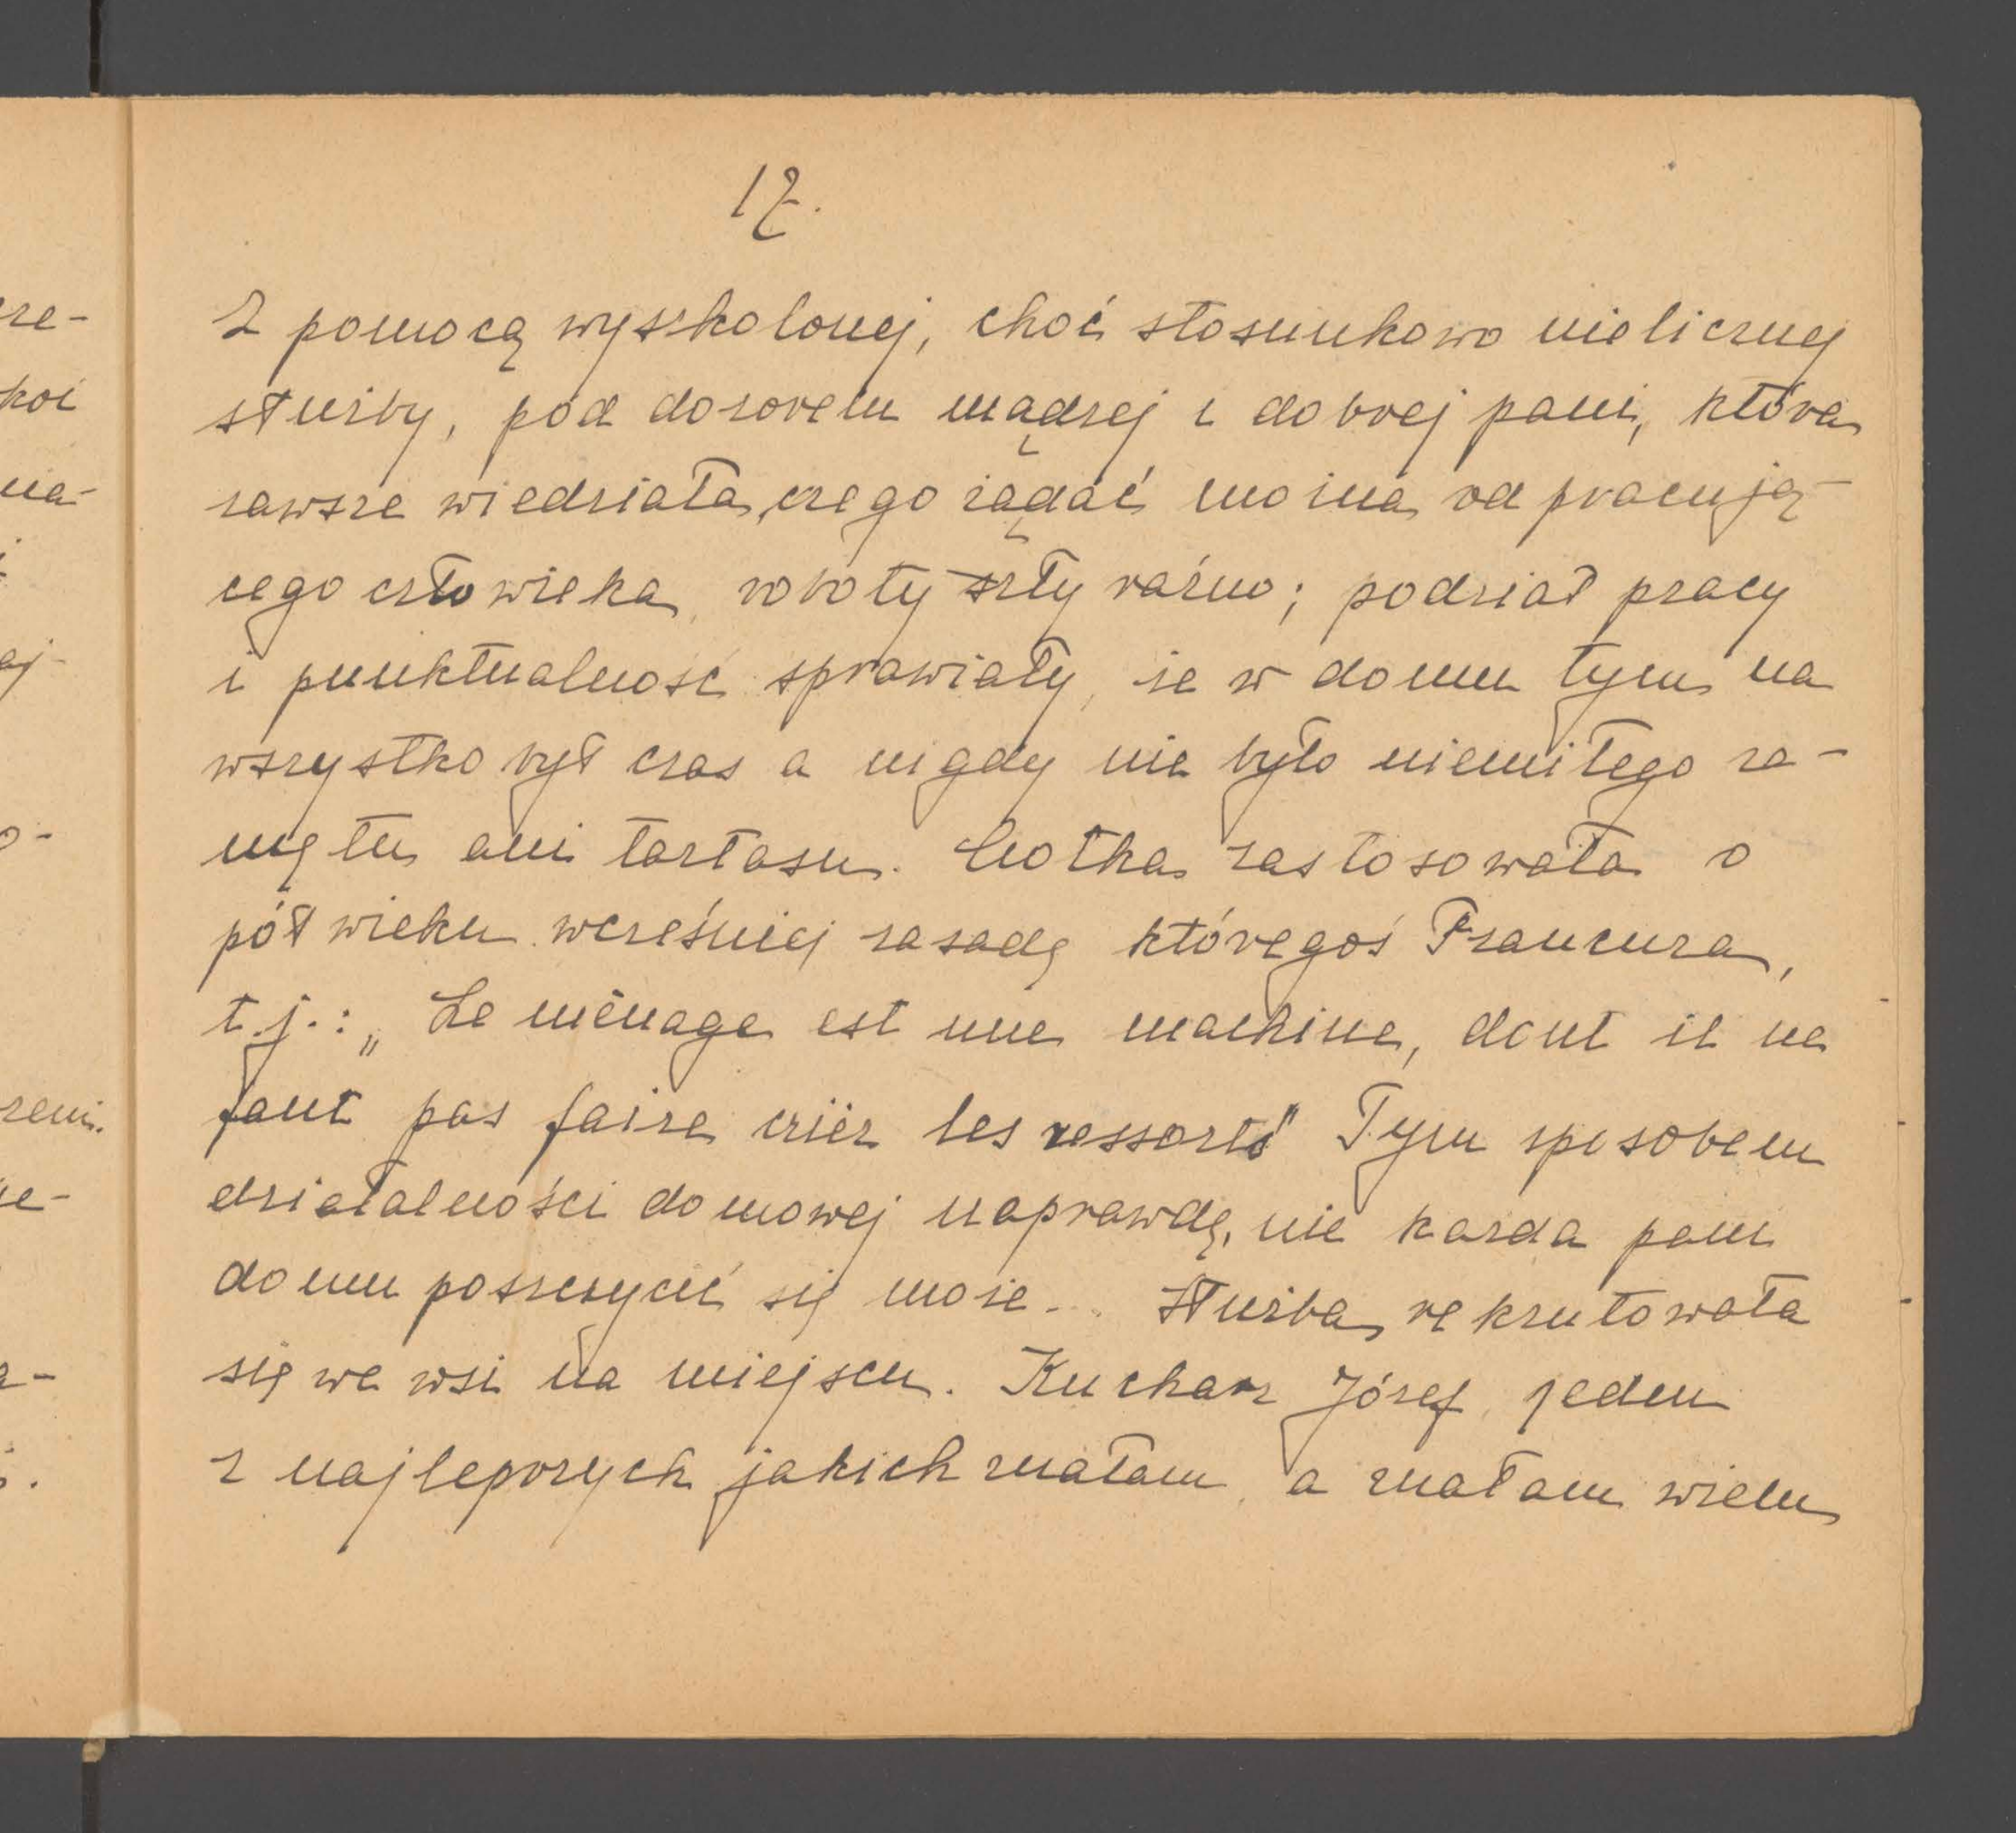 17.
Z pomocą wyszkolonej, choć stosunkowo nielicznej
służby, pod dozorem mądrej i dobrej pani, która
zawsze wiedziała, czego żądać można od pracują-
cego człowieka, roboty szły raźno; podział pracy
i punktualność sprawiały, że w domu tym na
wszystko był czas a nigdy nie było niemiłego za-
mętu ani tartasu. Ciotka zastosowała o
pół wieku wcześniej zasadę któregoś Francuza,
t.j.: „Le ménage est une machine, dont il ne
faut pas faire crier les ressorts" Tym sposobem
działalności domowej naprawdę, nie każda pani
domu poszczycić się może... Służba rekrutowała
się we wsi na miejscu. Kucharz Józef, jeden
z najlepszych jakich znałam, a znałam wielu
cze-
koi
na-
aj-
o-
zeni.
ie-
a-